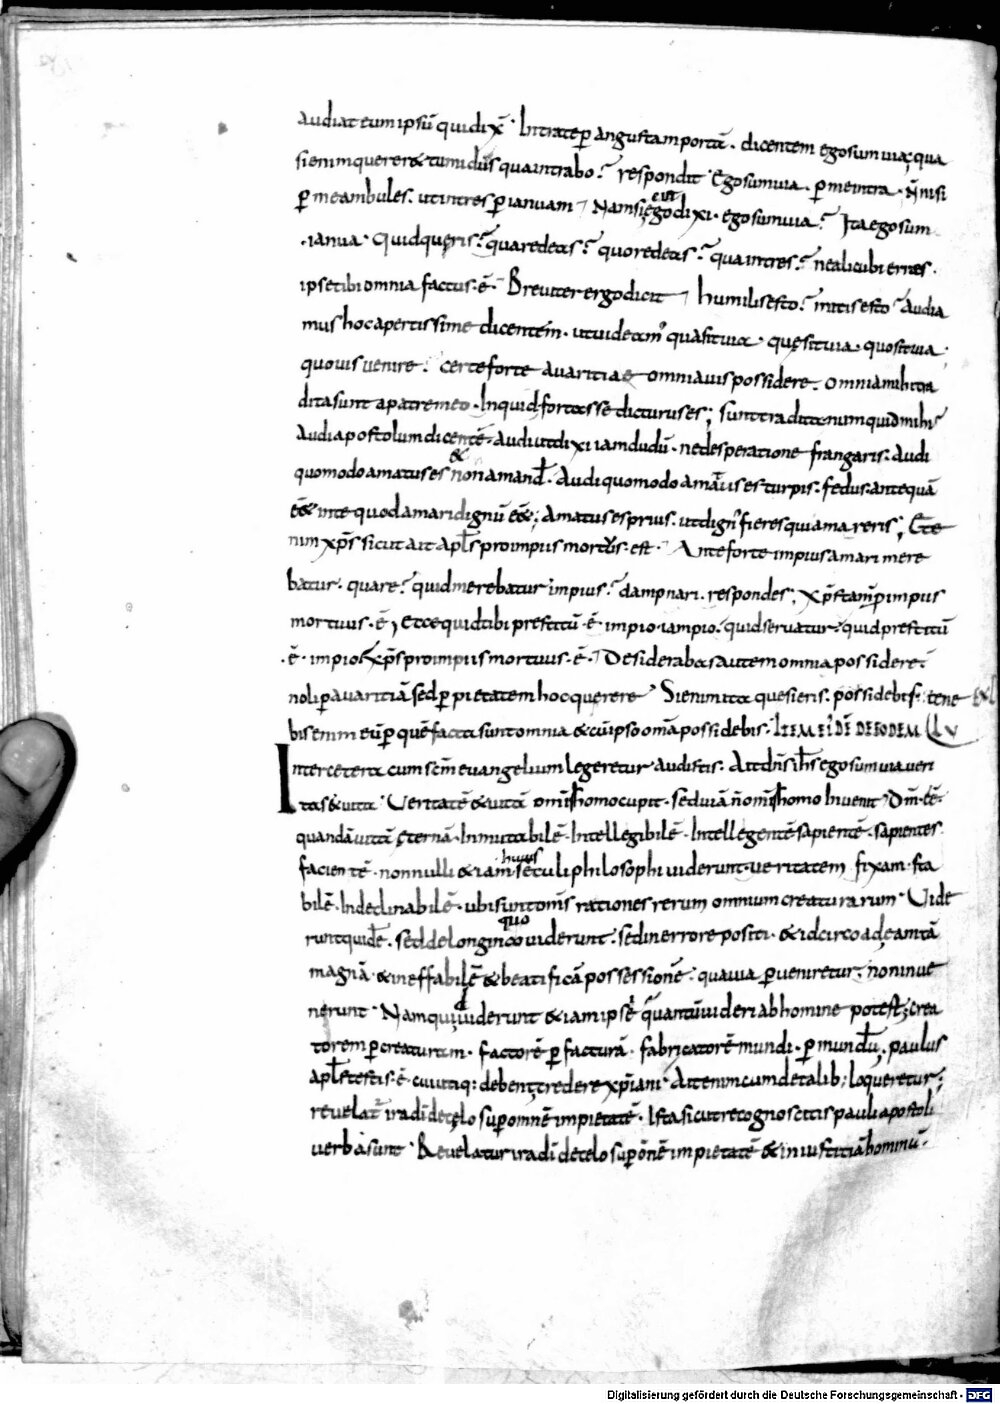 audiat eum ipsū qui dix̄. Intrate ꝑ angustam portā. dicentem ego sum uia; qua
si enim quereret & tu mi dn̄s qua intrabo? respondit Ego sum uia. ꝑ me intra. n̄ nisi
ꝑ me ambules. ut intres ꝑ ianuam Nam si ego dixi. ego sum uia? Ita ego sum
ianua. Quid quęris? qua redeas? quo redeas? qua intres? ne alicubi erres.
ipse tibi omnia factus ē Breuiter ergo dicit humilis esto? mitis esto Audia
mus hoc apertissime dicentem. ut uideam' qua sit uia. quę sit uia. quo sit uia
quo uis uenire? certe forte auaritia omnia uis possidere. Omnia mihi tra
dita sunt a patre meo. Inquid fortasse dicturus es; sunt tradita numquid mihi
Audi apostolum dicentē. audi ut dixi iam dudū. ne desperatione frangaris. audi
quomodo amatus es & non amand'. Audi quomodo amatus es turpis. fedus. antequā
eēt in te quod amari dignū eēt; Amatus es prius. ut dign' fieres qui amareris; Ete
nim xp̄s sicut ait apl̄s pro impiis mortuus est. Ante forte impius amari mere
batur. quare? quid merebatur impius? dampnari. respondes; xp̄s tam̄ ꝑ impiis
mortuus ē, Ecce quid tibi prestitū ē impio. iam pio. quid seruatur? quid prestitū
ē impio xp̄s pro impiis mortuus ē Desiderabas autem omnia possidere?
noli ꝑ auaritiā sed ꝑ pietatem hoc querere Si enim ita quesieris. possidebis. tene
bis enim eū ꝑ quē facta sunt omnia & cū ipso om̄a possidebis. ITEM
Inter cetera cum sc̄m euangelium legeretur audistis. Ait dn̄s ih̄s ego sum uia ueri
tas & uita Veritatē & uitā omīs homo cupit. sed uiā n̄ om̄is homo Inuenit Dm̄ eē
quandā uitā ęternā. Inmutabilē. Intellegibilē. Intellegentē sapientē. sapientes
facientē nonnulli & iam huius seculi philosophi uiderunt ueritatem fixam. sta
bilē. Indeclinabilē. ubi sunt om̄s rationes rerum omnium creaturarum. Uide
runt quidē. sed de longinquo uiderunt. sed in errore positi. & idcirco ad eam tā
magnā & ineffabilē & beatificā possessionē qua uia ꝑueniretur, non inue
nerunt Nam quia uiderunt & iam ipsē quantū uideri ab homine potest; crea
torem ꝑ creaturam. factorē ꝑ facturā. fabricatorē mundi. ꝑ mundū. paulus
apl̄s testis ē. cui utiq; debent credere xp̄iani. Ait enim cum de talib; loqueretur;
reuelat' ira dī de cęlo suꝑ omnē impietatē. Ista sicut recognoscitis pauli apostoli
uerba sunt Reuelatur ira dī de celo suꝑ om̄ē impietatē & in iustitiā hominū.
Digitalisierung gefördert durch die Deutsche Forschungsgemeinschaft - DFG